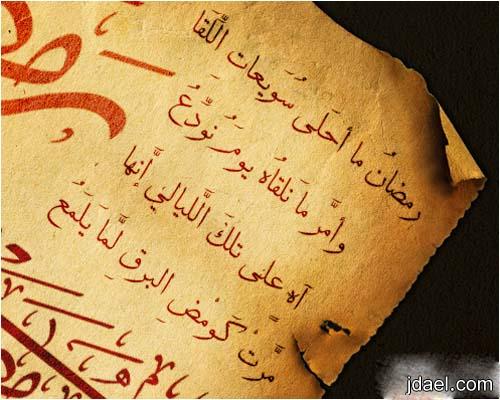 رمضانُ ما أحَلىَ سُوَيعَاتِ اللَّقَا
وأمَّر مَا نَلقَاه يومَ نُوّدِعُ
آه على تلكَ اللَّيالي إنّها
مرَّت كَومضِ البرقِ لمَّا يَلمَعُ
jdael.com